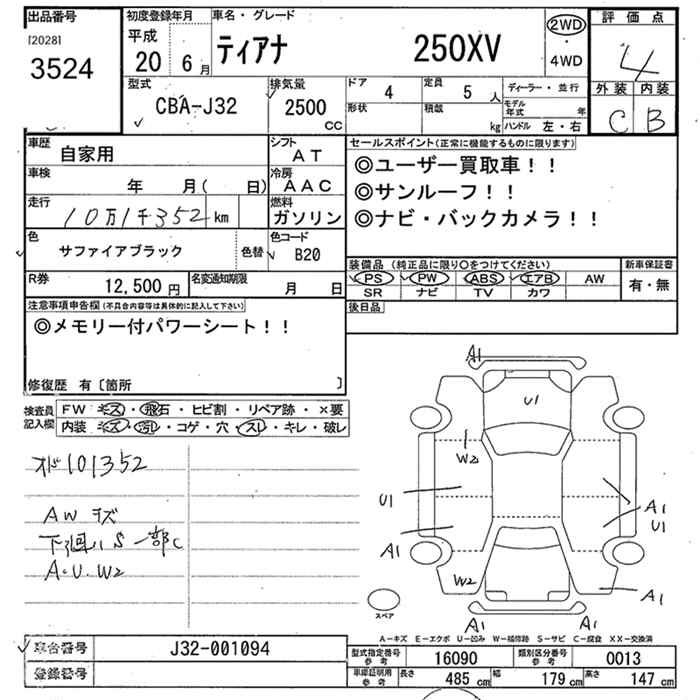 出品番号
[2028]
3524
初度登録年月
平成
20 6月
車名・グレード
ティアナ 250XV
2WD
・
4WD
評価点
4
外装 内装
C B
型式
CBA-J32
排気量
2500
CC
ドア
4
定員
5 人
形状
積載
kg
ディーラー・並行
モデル年式 年
ハンドル 左・右
車歴
自家用
シフト
AT
車検
年 月( 日)
冷房
AAC
走行
10万1千352 km
燃料
ガソリン
色
サファイアブラック
色替
色コード
B20
R券
12,500 円
名変通知期限
月 日
セールスポイント(正常に機能するものに限ります)
◎ユーザー買取車!!
◎サンルーフ!!
◎ナビ・バックカメラ!!
装備品(純正品に限り○をつけてください)
PS PW ABS エアB AW
SR ナビ TV カワ
新車保証書
有・無
後日品
注意事項申告欄(不具合内容等は具体的に記入して下さい)
◎メモリー付パワーシート!!
修復歴 有〔箇所 〕
検査員
記入欄
FW キズ・飛石・ヒビ割・リペア跡・×要
内装 キズ・汚レ・コゲ・穴・スレ・キレ・破レ
オド101352
AW キズ
下廻りS一部C
A・U・W2
A1
U1
W2
U1
A1
U1
A1
W2
A1
A1
A1
スペア
A-キズ E-エクボ U-凹み W-補修跡 S-サビ C-腐食 XX-交換済
車台番号
J32-001094
登録番号
型式指定番号
参考
16090
類別区分番号
参考
0013
車庫証明用
参考
長さ
485 cm
幅
179 cm
高さ
147 cm